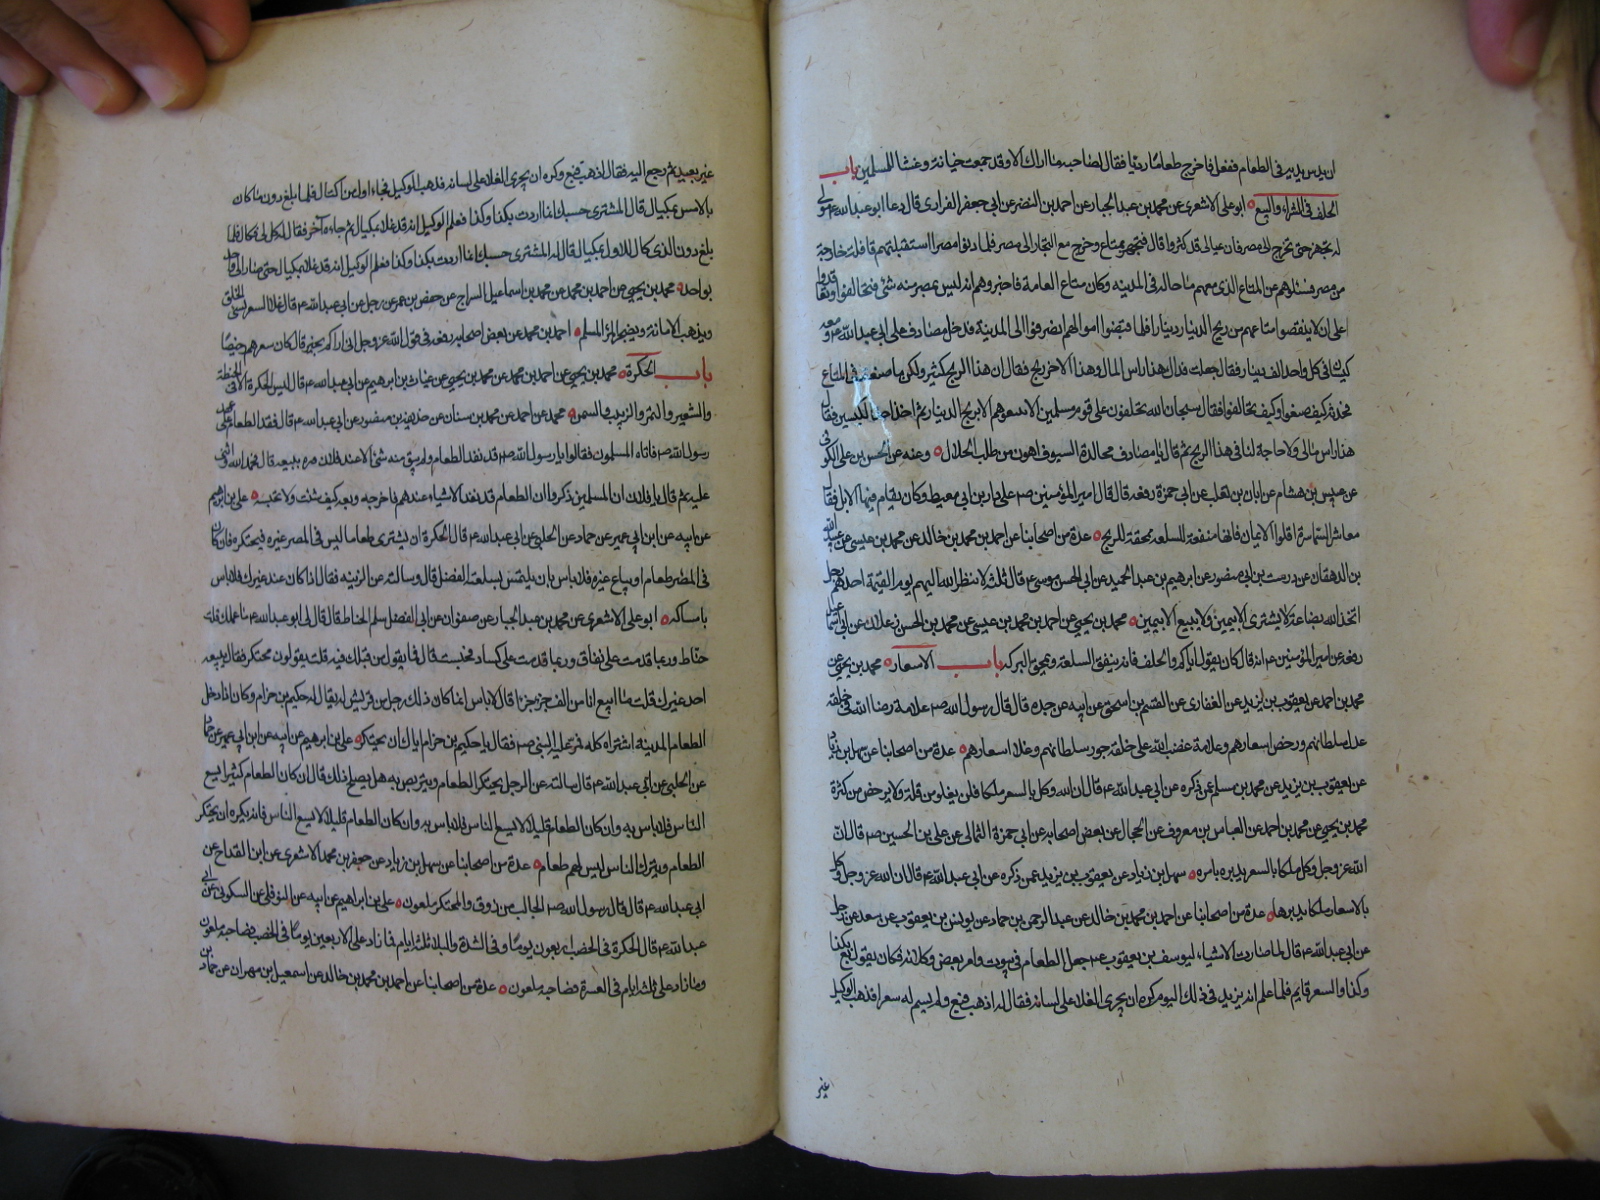 ان يدس يديه في الطعام ففعل فاخرج طعاما رديا فقال لصاحبه ما اراك الا وقد جمعت خيانة وغشا للمسلمين باب
الحلف في الشراء والبيع ابو علي الاشعري عن محمد بن عبد الجبار عن احمد بن النضر عن ابي جعفر الفزاري قال دعا ابو عبد الله ع مولى
له تجهز حتى تخرج الى مصر فان عيالي قد كثروا قال فتجهز بمتاع وخرج مع التجار الى مصر فلما دنوا من مصر استقبلتهم قافلة خارجة
من مصر فسئلوهم عن المتاع الذي معهم ما حاله في المدينه وكان متاع العامة فاخبروهم انه ليس بمصر منه شئ فتحالفوا وتعاقدوا
على ان لا ينقصوا متاعهم من ربح الدينار دينارا فلما قبضوا اموالهم انصرفوا الى المدينة فدخل مصادف على ابي عبد الله ع ومعه
كيسان في كل واحد الف دينار فقال جعلت فداك هذا راس المال وهذا الاخر ربح فقال ان هذا الربح كثير ولكن ما صنعتم في المتاع
فحدثه كيف صنعوا وكيف تحالفوا فقال سبحان الله تحلفون على قوم مسلمين الا تبيعوهم الا بربح الدينار دينارا ثم اخذ احد الكيسين فقال
هذا راس مالي ولا حاجة لنا في هذا الربح ثم قال يا مصادف مجالدة السيوف اهون من طلب الحلال وعنه عن الحسن بن علي الكوفي
عن عبيس بن هشام عن ابان بن تغلب عن ابي حمزة رفعه قال قام امير المؤمنين ص على دار بن ابي معيط وكان يقام فيها الابل فقال
معاشر السماسرة اقلوا الايمان فانها منفقة للسلعه ممحقة للربح عدة من اصحابنا عن احمد بن محمد بن خالد عن محمد بن عيسى عن عبيد الله
بن الدهقان عن درست بن ابي منصور عن ابرهيم بن عبد الحميد عن ابي الحسن موسى ع قال ثلثة لا ينظر الله اليهم يوم القيمة احدهم رجل
اتخذ الله بضاعة لا يشتري الا بيمين ولا يبيع الا بيمين محمد بن يحيى عن احمد بن محمد بن عيسى عن محمد بن الحسن زعلان عن ابي اسماعيل
رفعه عن امير المؤمنين ع انه قال كان يقول اياكم والحلف فانه ينفق السلعة ويمحق البركه باب الاسعار محمد بن يحيى عن
محمد بن احمد عن يعقوب بن يزيد عن الغفاري عن القسم بن اسحق عن ابيه عن جده قال قال رسول الله ص علامة رضا الله في خلقه
عدل سلطانهم ورخص اسعارهم وعلامة غضب الله على خلقه جور سلطانهم وغلا اسعارهم عدة من اصحابنا عن سهل بن زياد
عن يعقوب بن يزيد عن محمد بن مسلم عن ذكره عن ابي عبد الله ع قال ان الله وكل بالسعر ملكا فلن يغلو من قلة ولا يرخص من كثرة
محمد بن يحيى عن محمد بن احمد عن العباس بن معروف عن الحجال عن بعض اصحابه عن ابي حمزة الثمالي عن علي بن الحسين ص قال ان
الله عز وجل وكل ملكا بالسعر يدبره بامره سهل بن زياد عن يعقوب بن يزيد عمن ذكره عن ابي عبد الله ع قال ان الله عز وجل وكل
بالاسعار ملكا يدبرها عدة من اصحابنا عن احمد بن محمد بن خالد عن عبد الرحمن بن حماد عن يونس بن يعقوب عن سعد عن رجل
عن ابي عبد الله ع قال لما صارت الاشياء ليوسف بن يعقوب ع جعل الطعام في بيوت وامر بعض وكلائه فكان يقول بع بكذا
وكذا والسعر قايم فلما علم انه يزيد في ذلك اليوم كره ان يجري الغلا على لسانه فقال له اذهب فبع ولم يسم له سعرا فذهب الوكيل
غير
غير بعيد ثم رجع اليه فقال اذهب فبع وكره ان يجري الغلا على لسانه فذهب الوكيل فجاء اول من اكتال فلما بلغ دون ما كان
بالامس بمكيال قال المشتري حسبك انما اردت بكذا وكذا فعلم الوكيل انه قد غلا بمكيال ثم جاءه آخر فقال له كل لي فكال فلما
بلغ دون الذي كال للاول بمكيال قال له المشتري حسبك انما اردت بكذا وكذا فعلم الوكيل انه قد غلا بمكيال حتى صار الى واحد
بواحد محمد بن يحيى عن احمد بن محمد عن محمد بن اسماعيل السراج عن حفص بن عمر عن رجل عن ابي عبد الله ع قال غلا السعر يسئ الخلق
ويذهب الامانة ويضجر المرء المسلم احمد بن محمد عن بعض اصحابه رفعه في قول الله عز وجل اني اراكم بخير قال كان سعرهم رخيصا
باب الحكرة محمد بن يحيى عن احمد بن محمد عن محمد بن يحيى عن غياث بن ابرهيم عن ابي عبد الله ع قال ليس الحكرة الا في الحنطة
والشعير والتمر والزبيب والسمن محمد عن احمد عن محمد بن سنان عن حذيفه بن منصور عن ابي عبد الله ع قال فقد الطعام على عهد
رسول الله ص فاتاه المسلمون فقالوا يا رسول الله ص قد نفد الطعام ولم يبق منه شئ الا عند فلان مره ببيعه قال فحمد الله واثنى
عليه ثم قال يا فلان ان المسلمين ذكروا ان الطعام قد نفد الا شياء عندهم فاخرجه وبعه كيف شئت ولا تحبسه علي بن ابرهيم
عن ابيه عن ابن ابي عمير عن حماد عن الحلبي عن ابي عبد الله ع قال الحكرة ان يشتري طعاما ليس في المصر غيره فيحتكره فان كان
في المصر طعام او يباع غيره فلا باس بان يلتمس بسلعته الفضل قال وسالته عن الزيت فقال اذا كان عند غيرك فلا باس
بامساكه ابو علي الاشعري عن محمد بن عبد الجبار عن صفوان عن ابي الفضل سلم الحناط قال قال لي ابو عبد الله ع ما عملك قلت
حناط وربما قدمت على نفاق وربما قدمت على كساد فحبست قال فما يقول من قبلك فيه قلت يقولون محتكر فقال يبيعه
احد غيرك قلت ما ابيع انا من الف جزء جزءا قال لا باس انما كان ذلك رجل من قريش له يقال له حكيم بن حزام وكان اذا دخل
الطعام المدينه اشتراه كله فمر عليه النبي ص فقال يا حكيم بن حزام اياك ان تحتكر علي بن ابرهيم عن ابيه عن ابن ابي عمير عن حماد
عن الحلبي عن ابي عبد الله ع قال سالته عن الرجل يحتكر الطعام ويتربص به هل يصلح ذلك قال ان كان الطعام كثيرا يسع
الناس فلا باس به وان كان الطعام قليلا لا يسع الناس فلا باس به وان كان الطعام قليلا لا يسع الناس فانه يكره ان يحتكر
الطعام ويترك الناس ليس لهم طعام عدة من اصحابنا عن سهل بن زياد عن جعفر بن محمد الاشعري عن ابن القداح عن
ابي عبد الله ع قال قال رسول الله ص الجالب مرزوق والمحتكر ملعون علي بن ابراهيم عن ابيه عن النوفلي عن السكوني عن ابي
عبد الله ع قال الحكرة في الخصب اربعون يوما وفي الشدة والبلا ثلثة ايام فما زاد على الاربعين يوما في الخصب فصاحبه ملعون
وما زاد على ثلثه ايام في العسرة فصاحبه ملعون عدة من اصحابنا عن احمد بن محمد بن خالد عن اسمعيل بن مهران عن حماد بن